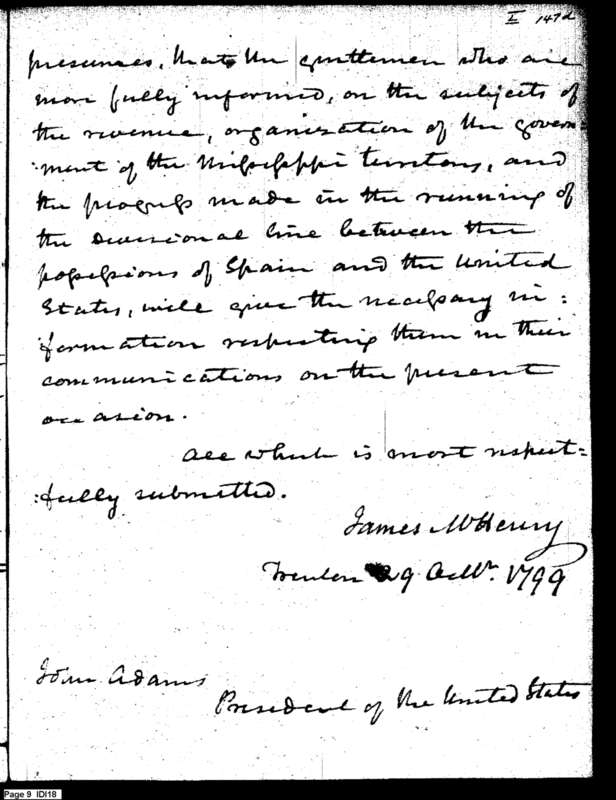 I 147d
presumes, that the gentlemen who are
more fully informed, on the subjects of
the revenue, organization of the govern=
=ment of the Missisippi territory, and
the progress made in the running of
the divisional line between the
possessions of Spain and the United
States, will give the necessary in=
=formation respecting them in their
communications on the present
occasion.
All which is most respect=
=fully submitted.
James McHenry
Trenton 29 Octbr. 1799
John Adams
President of the United States
Page 9 IDI18